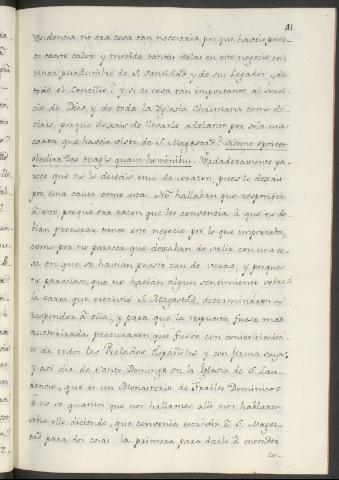 41
residencia no era cosa tan necesaria porque haveis pues-
to tanto calor y metido tantas velas en este negocio con
tanta pesadumbre de S. Santidad y de su Legado, y de
todo el Concilio? y si es cosa tan importante al servi-
cio de Dios, y de toda la Iglesia Christiana como de-
ciais, porque dexais de llevarlo adelante por sola una
carta que haveis visto de S. Magestad? Nonne oportet
obedire Deo magis quam hominibus. Verdaderamente pa-
rece que no lo deseais mui de corazon, pues lo dexais
por una causa como esta. No hallaban que responder
à esto porque era razon que les convencia à que no de-
bian procurar tanto este negocio por lo que importaba,
como por no parecer que dexaban de salir con una co-
sa en que se havian puesto tan de veras; y porque
no pareciese, que no hacian algun sentimiento sobre
la carta que escrivió S. Magestad, determinaron
responder à ella; y para que la respuesta fuese mas
autorizada procuraron que fuese con consentimien-
to de todos los Prelados Españoles, y con firma suya:
y asi dia de Santo Domingo en la Iglesia de S. Lau-
rencio, que es un Monasterio de Frailes Dominicos
no se quantos que nos hallamos alli nos hablaron
sobre ello diciendo, que convenia escrivir à S. Mages-
tad para dos cosas: la primera para darle à entender
co-